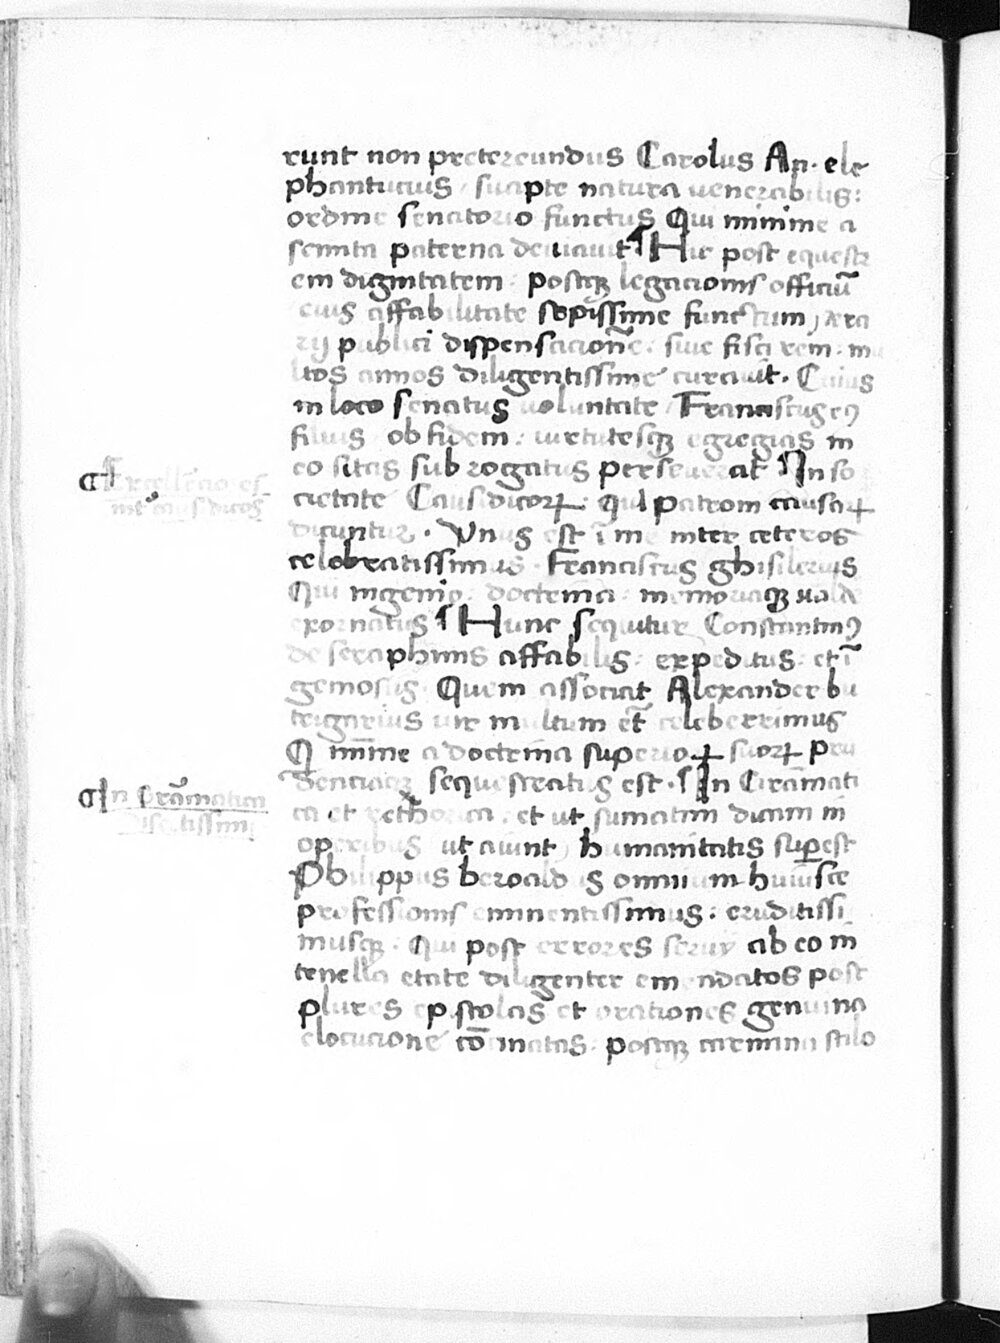 runt non pretereundus Carolus An. ele
phantucius, suapte natura venerabilis:
ordine senatorio functus Qui minime a
semita paterna deviavit ¶ Hic post equestr
em dignitatem: postq3 legacionis officiū
eius affabilitate sepissime functum, & era
rij publici dispensacionē: sive fisci rem: mu
ltos annos diligentissime curavit. Cuius
in loco senatus voluntate, Franciscus eꝰ
filius, ob fidem: virtutesq3 egregias in
eo sitas subrogatus perseverat ¶ In so
cietate Causidicoꝝ: Qui patroni causaꝝ
dicuntur. Vnus est inter ceteros
celebratissimus. Franciscus ghisilerius
Qui ingenio: doctrina: memoriaq3 valde
exornatus ¶ Hunc sequitur Constantinꝰ
de seraphinis affabilis: expeditus: et ī
geniosus. Quem associat Alexander bu
trigarius vir multum et celeberrimus
Q minime a doctrina superioꝝ suoꝝ pru
dentiaq3 sequestratus est. ¶ In Grāmati
ca et rethorica, et ut sumatim dicam in
operibus ut aiunt, humanitatis superest
Philippus beroaldus omnium huiusce
professionis eminentissimus: eruditissi
musq3. Qui post errores servij ab eo in
tenella etate diligenter emendatos post
plures epistolas et orationes genuina
elocucione cōcinnatas: postq3 carmina stilo
¶ Excellētiores
int causidicos
¶ In Grāmatica
disertissimi